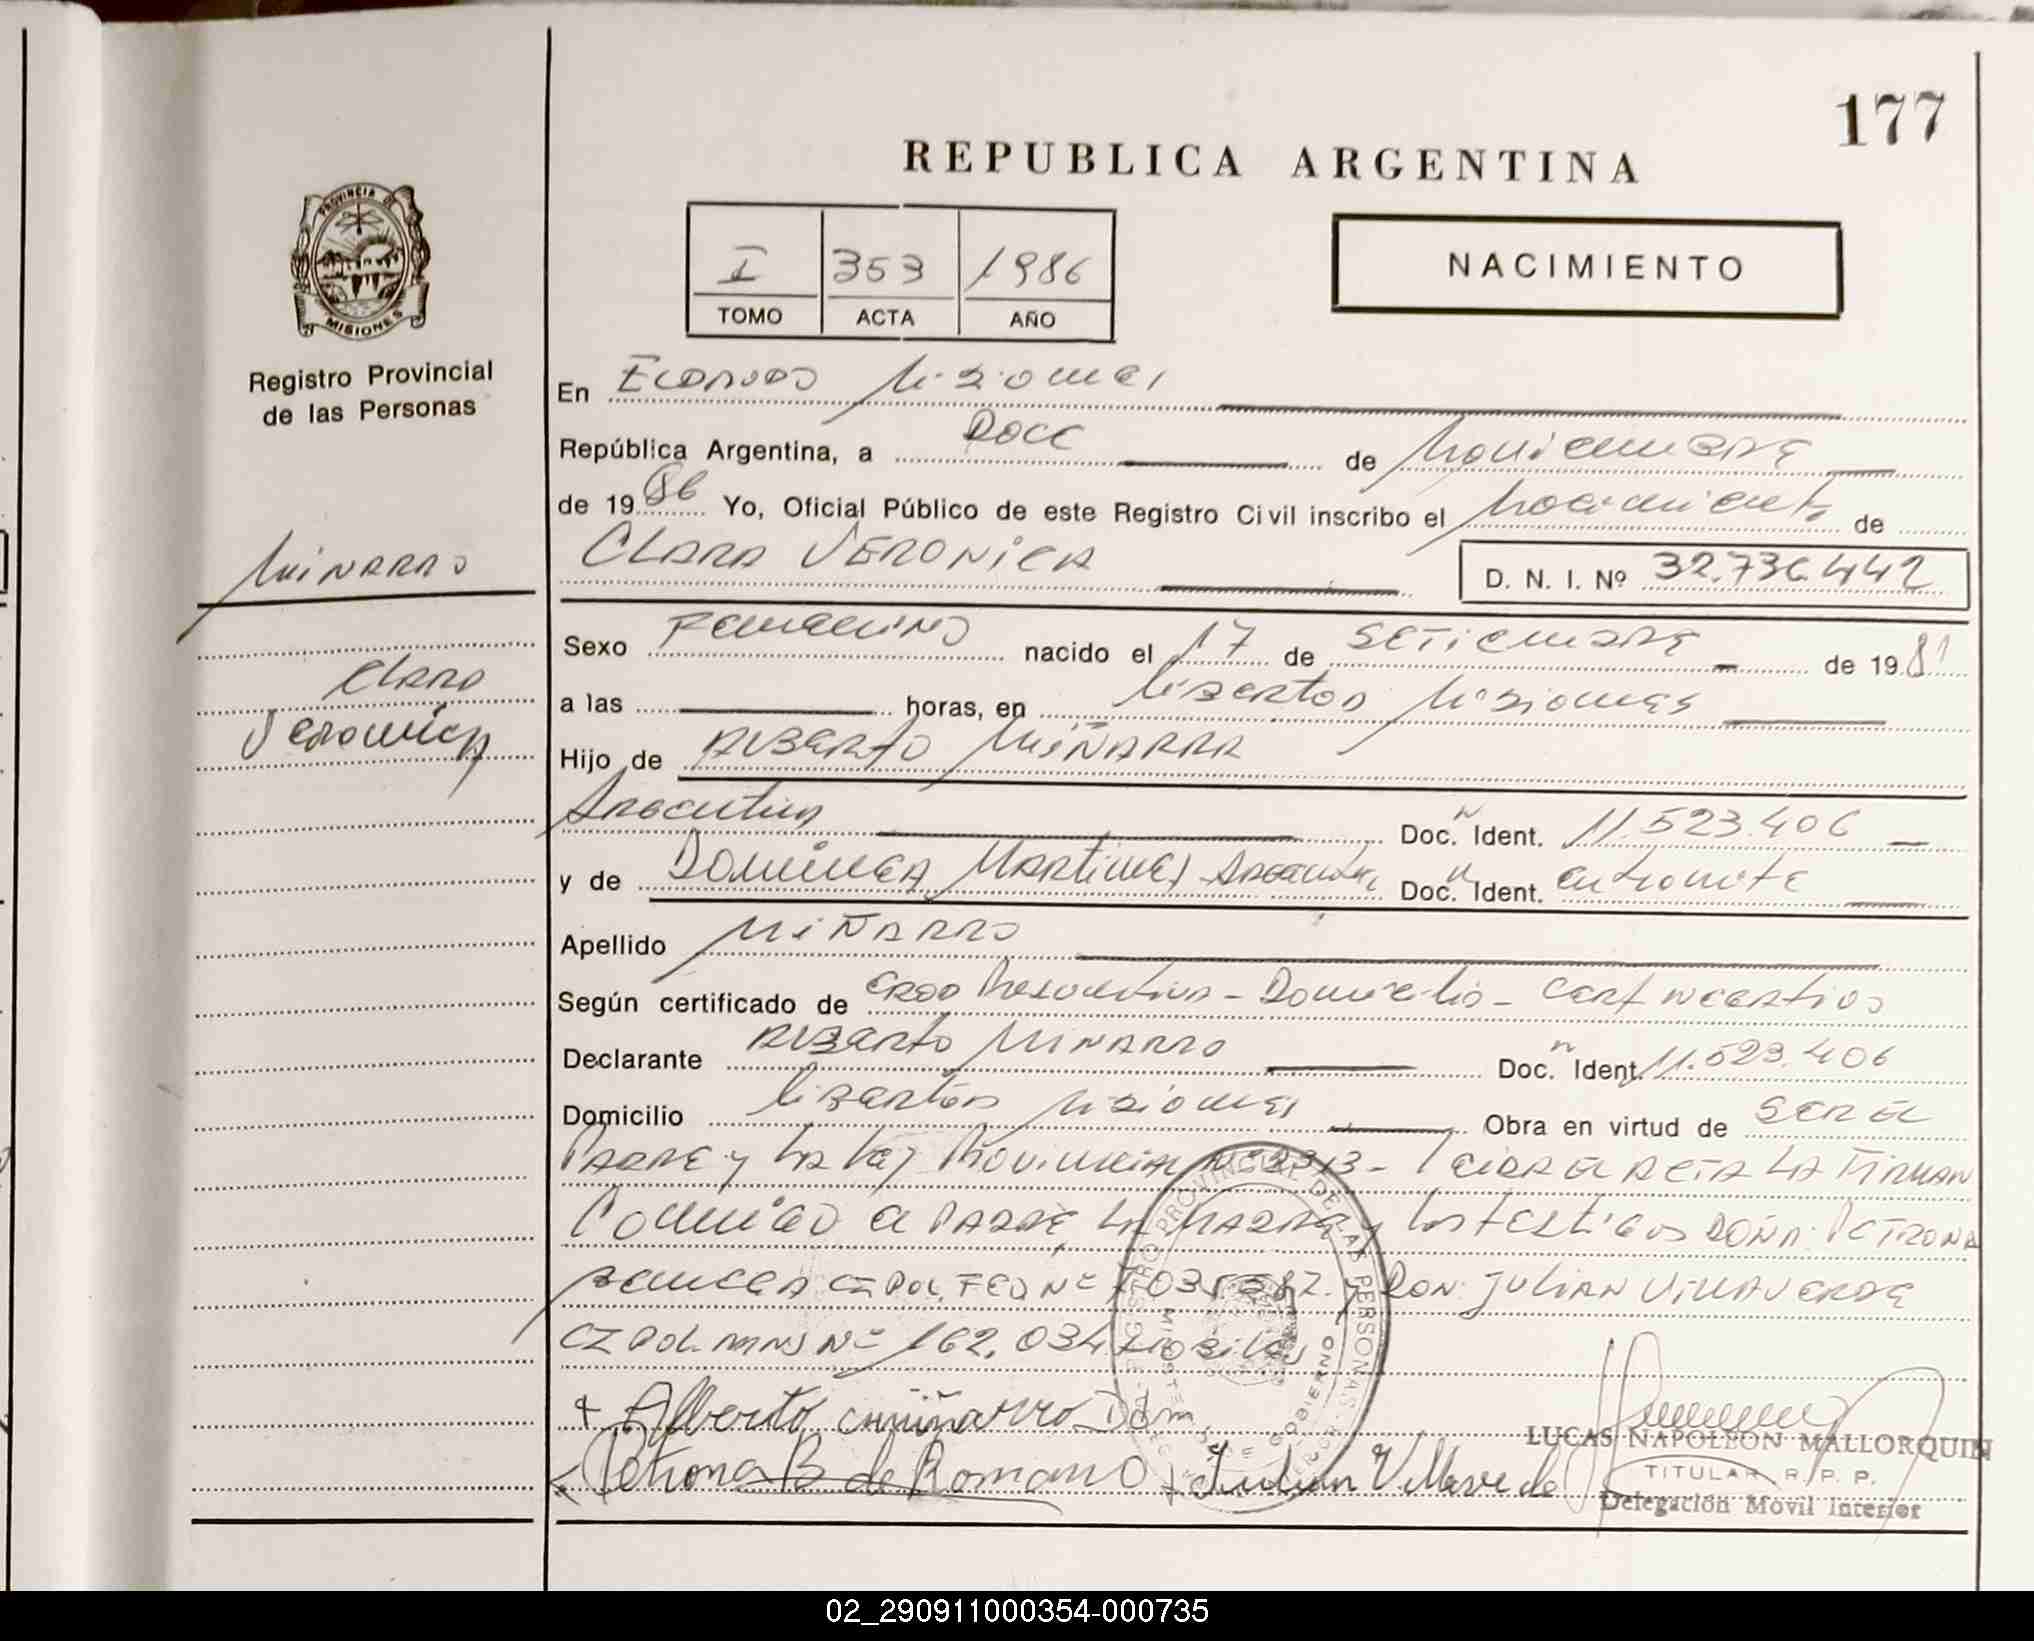 177
REPUBLICA ARGENTINA
PROVINCIA DE
MISIONES
Registro Provincial
de las Personas
I 353 1986
TOMO ACTA AÑO
NACIMIENTO
En Eldorado Misiones
República Argentina, a Doce de Noviembre
de 1986 Yo, Oficial Público de este Registro Civil inscribo el Nacimiento de
CLARA VERONICA D. N. I. Nº 32.736.442
Miñarro
Clara
Veronica
Sexo Femenino nacido el 17 de Setiembre de 1981
a las horas, en Libertad Misiones
Hijo de Alberto MiÑARRA
Argentina Doc.N Ident. 11.523.406
y de Dominga Martinez Argentina Doc.N Ident. en tramite
Apellido MiÑARRO
Según certificado de Domicilio -
Declarante Alberto Miñarro Doc.N Ident. 11.523.406
Domicilio Libertad Misiones Obra en virtud de SER EL
PADRE y LA Ley Provincial Nº - Leida el ACTA LA FIRMAN
Conmigo el PADRE LA MADRE y los testigos DOÑA: PETRONA
CI POL. FED Nº y DON: JULIAN VILLAVERDE
CI POL. MNS Nº 162.034
+ Alberto miñarro Dom
Petrona B de Romano + Julian Villaverde
LUCAS NAPOLEON MALLORQUIN
TITULAR R. P. P.
Delegación Móvil Interior
REGISTRO PROVINCIAL DE LAS PERSONAS
MINISTERIO DE GOBIERNO
02_290911000354-000735